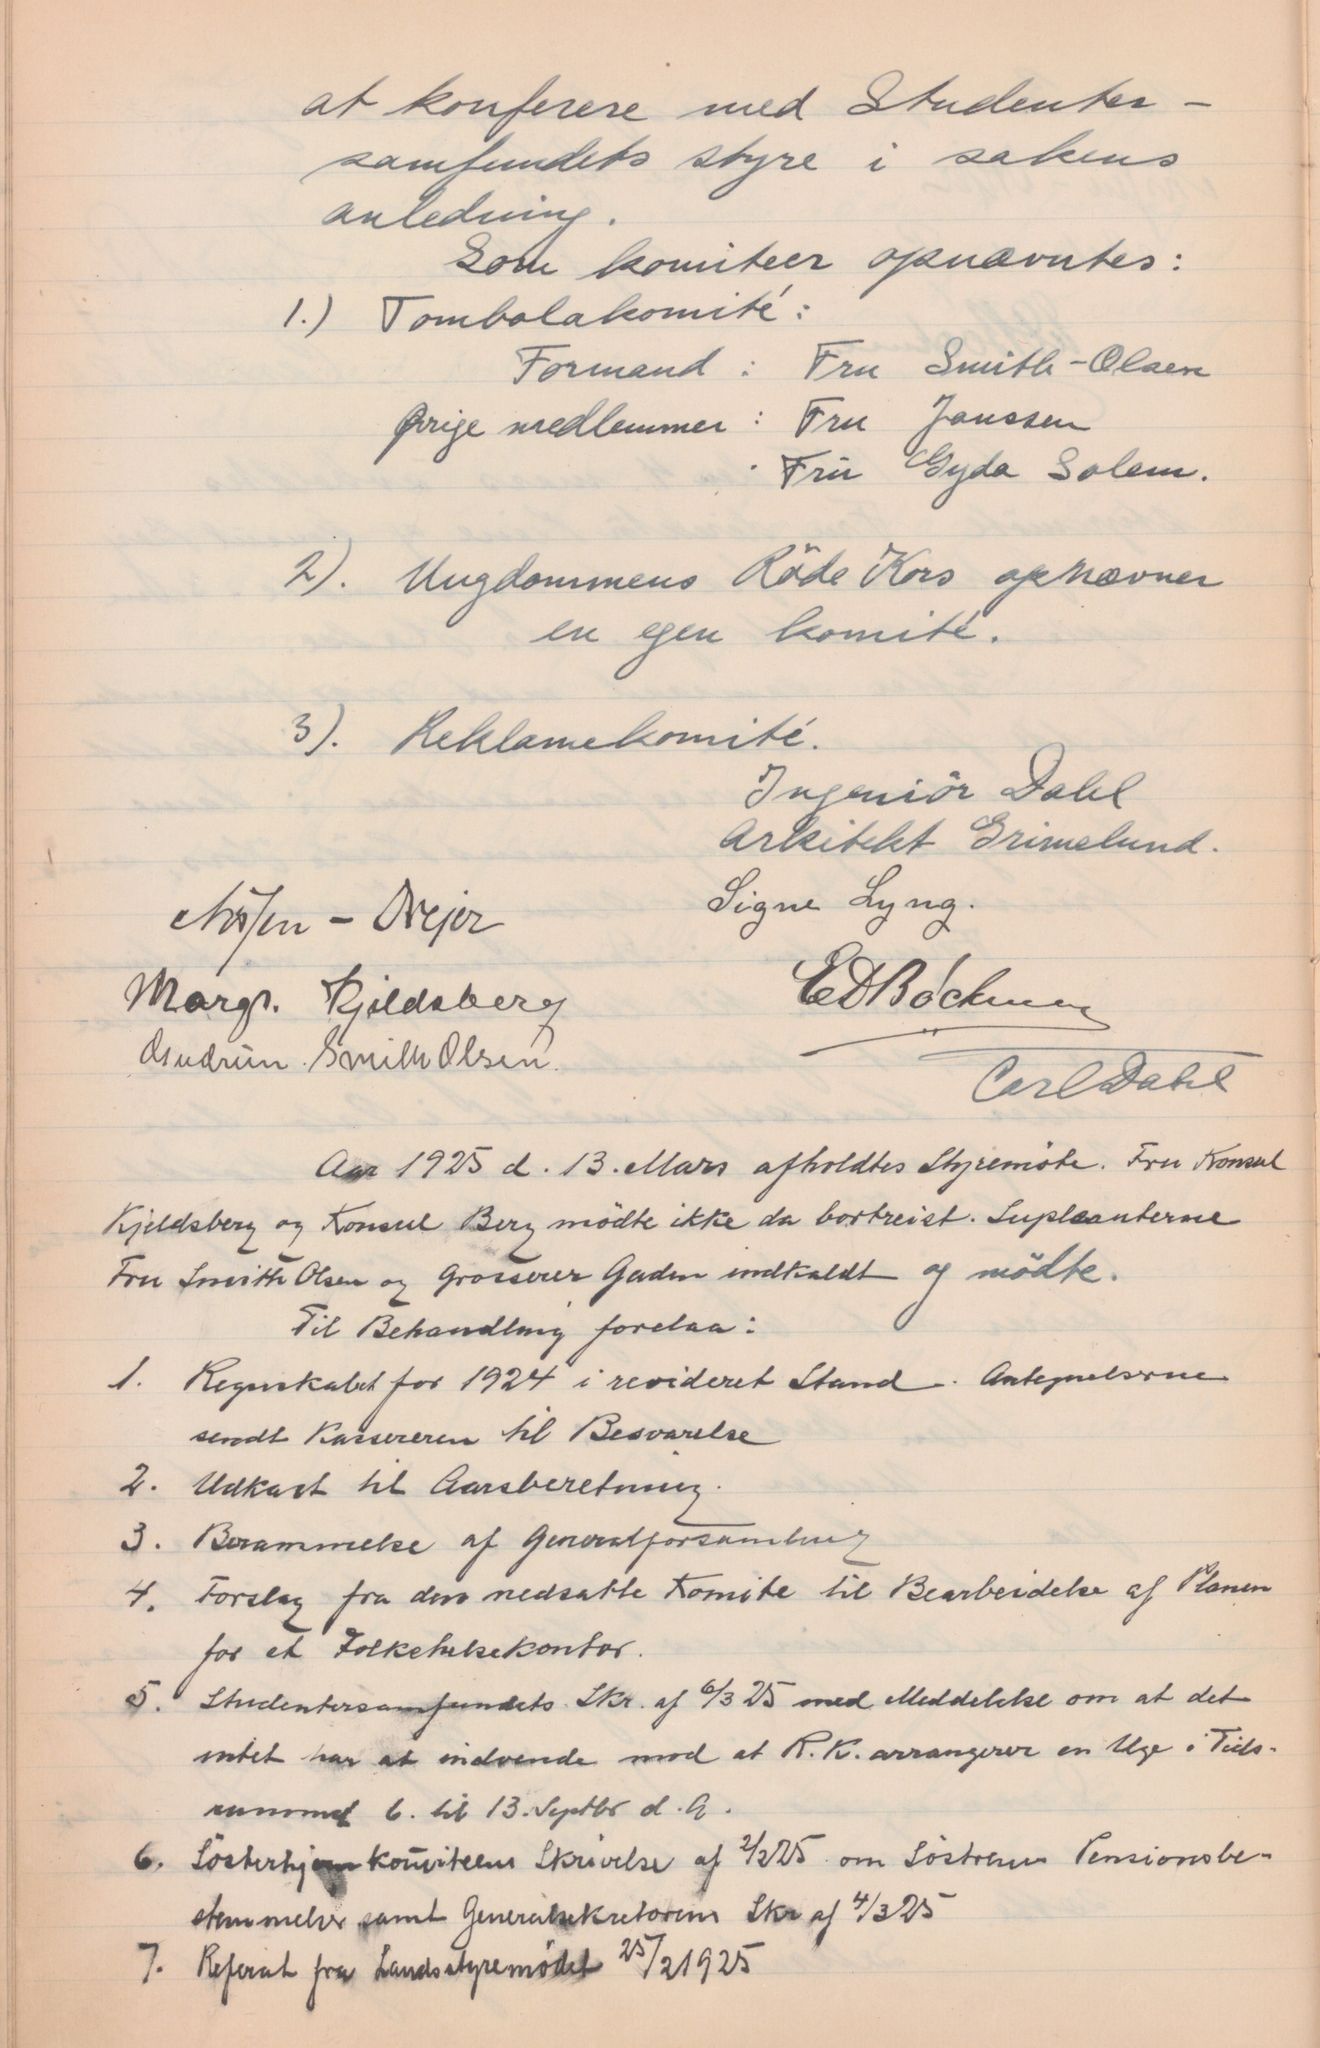 at konferere med Studenter-
samfundets styre i sakens
anledning.
Som komiteer opnævntes:
1.) Tombolakomité:
Formand: Fru Smith-Olsen
Øvrige medlemmer: Fru Janssen
Fru Gyda Solem.
2). Ungdommens Röde Kors opnævner
en egen komité.
3). Reklamekomité.
Ingeniör Dahl
Arkitekt Grimelund.
Signe Lyng.
Margr. Kjeldsberg
E D Bóckman
Gudrun Smith Olsen.
Carl Dahl
Aar 1925 d. 13. Mars afholdtes Styremöte. Fru Konsul
Kjeldsberg og Konsul Berg mödte ikke da bortreist. Supleanterne
Fru Smith Olsen og Grosserer Gaden indkaldt og mödte.
Til Behandling forelaa:
1. Regnskabet for 1924 i revideret Stand. Antegnelserne
sendt Kassereren til Besvarelse
2. Udkast til Aarsberetning.
3. Berammelse af Generalforsamling
4. Forslag fra den nedsatte Komite til Bearbeidelse af Planen
for et Folkehelsekontor.
5. Studentersamfundets Skr. af 6/3 25 med Meddelelse om at det
intet har at indvende mod at R.K. arrangerer en Uge i Tids-
rummet 6. til 13. Septbr d. A.
6. Sösterhjemkomiteens Skrivelse af 2/2 25 om Söstrenes Pensionsbe-
stemmelser samt Generalsekretærens Skr af 4/3 25
7. Referat fra Landsstyremödet 25/2 1925